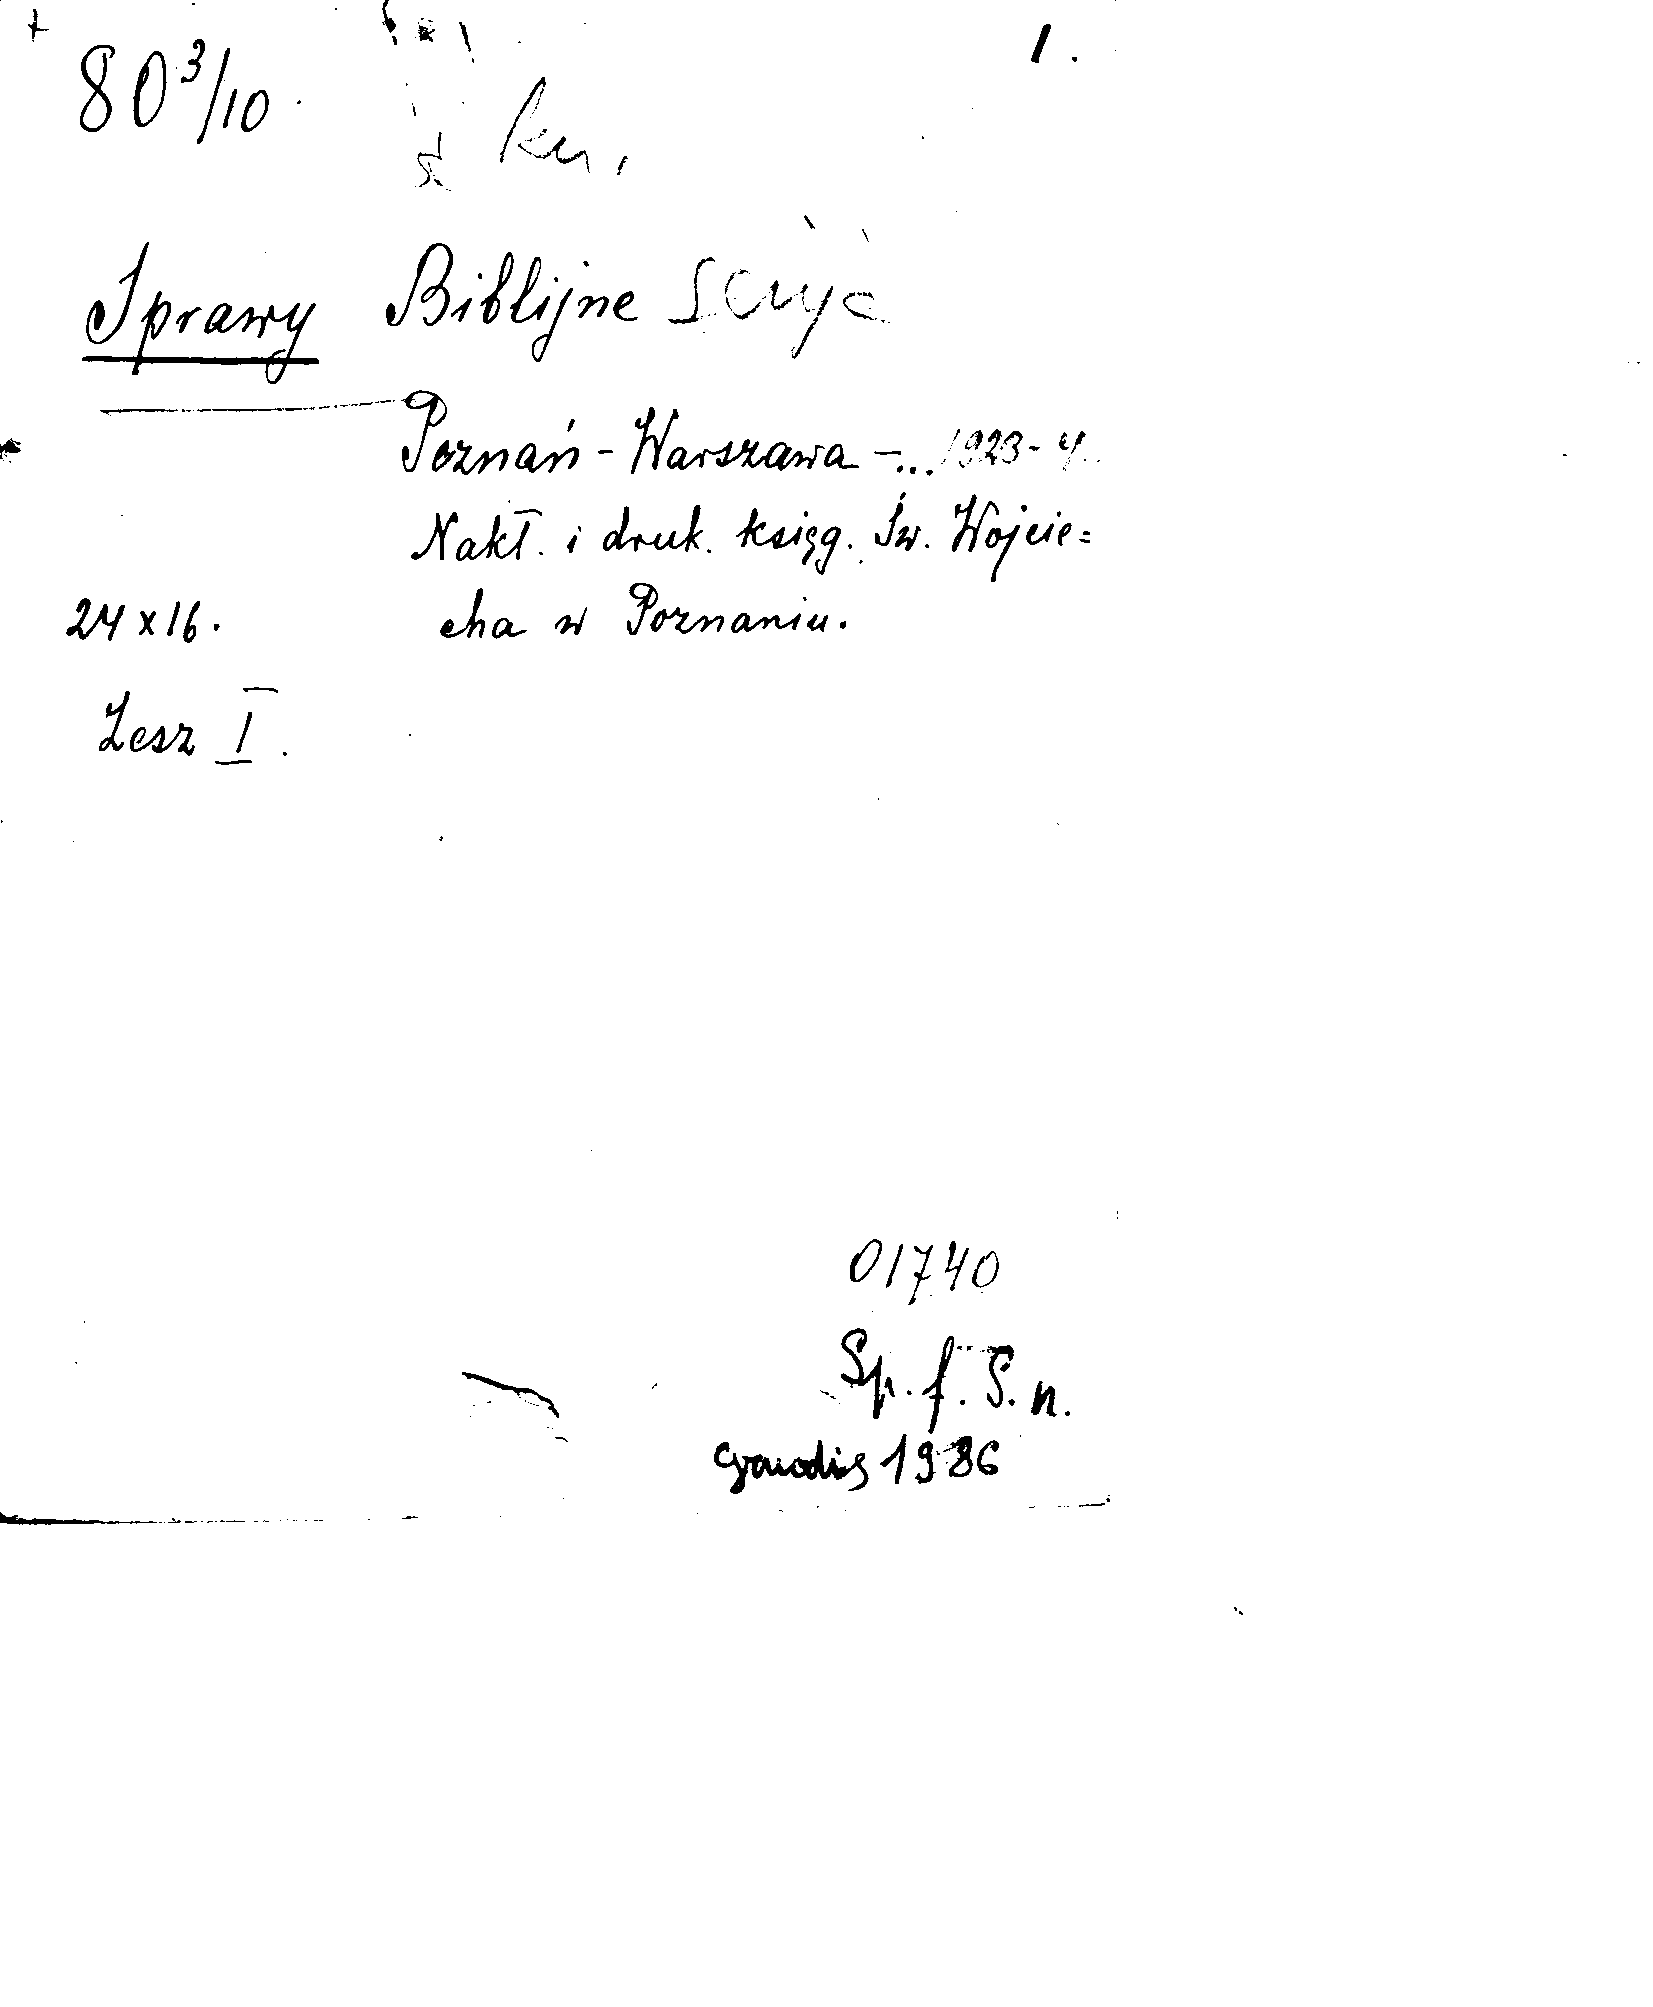 80 3/10
1.
Sprawy Biblijne
Poznań - Warszawa - ... 1923-4.
Nakł. i druk. księg. Św. Wojcie=
24 x 16. cha w Poznaniu.
Zesz I.
01740
Sp. f. S. n.
grudzień 1986